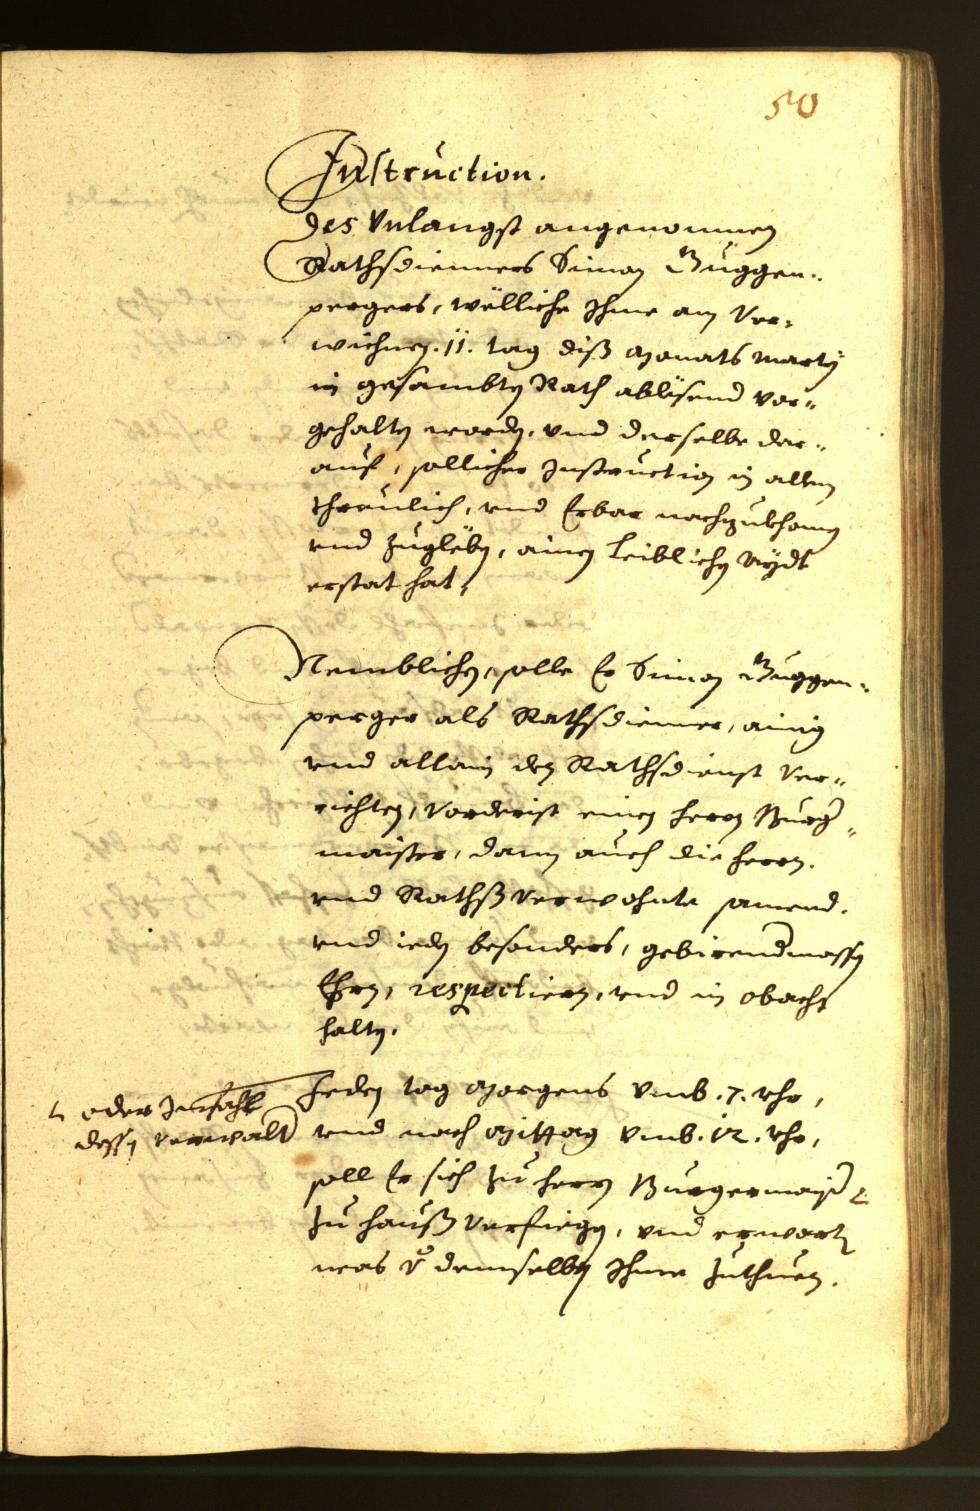 50
Instruction.
des Vnlangst angenomnen
Rathsdienners Simon Buggen„
pergers, wölliche Ihme am Ver„
wichnen .11. tag diß Monats Marty
in gesambten Rath ablösend vor„
gehalten worden, vnd derselbe dar„
auf, sollicher Instruction in allem
threulich, vnd Erbar nachzukhomen
vnd zugleben, ainen leiblichen Aydt
erstat hat,
Nemblichen, solle Er Simon Buggen„
perger als Rathsdienner, ainig
vnd allain den Rathsdienst Ver„
richten, Vorderist einen herrn Burg„
maister, dann auch die herrn.
vnd RathsVerwohnte samend.
vnd ieden besonders, gebirendmassen
Ehrn, respectiern, vnd in obacht
halten.
Jeden tag Morgens Vmb .7. Vhr,
vnd nach Mittag Vmb .12. Vhr,
soll Er sich zu herrn Burgermaister
⌞ oder Jnfahl
dessen Verwalt
zu hauß Verfiegen, vnd erwarten
was Von demselben Ihme zuthuen.